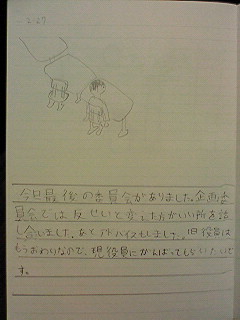 2.27
今日最後の委員会がありました。企画委
員会では反せいと変えた方がいい所を話
し合いました。あとアドバイスもしました。旧役員は
もうおわりなので、現役員にがんばってもらいたいで
す。